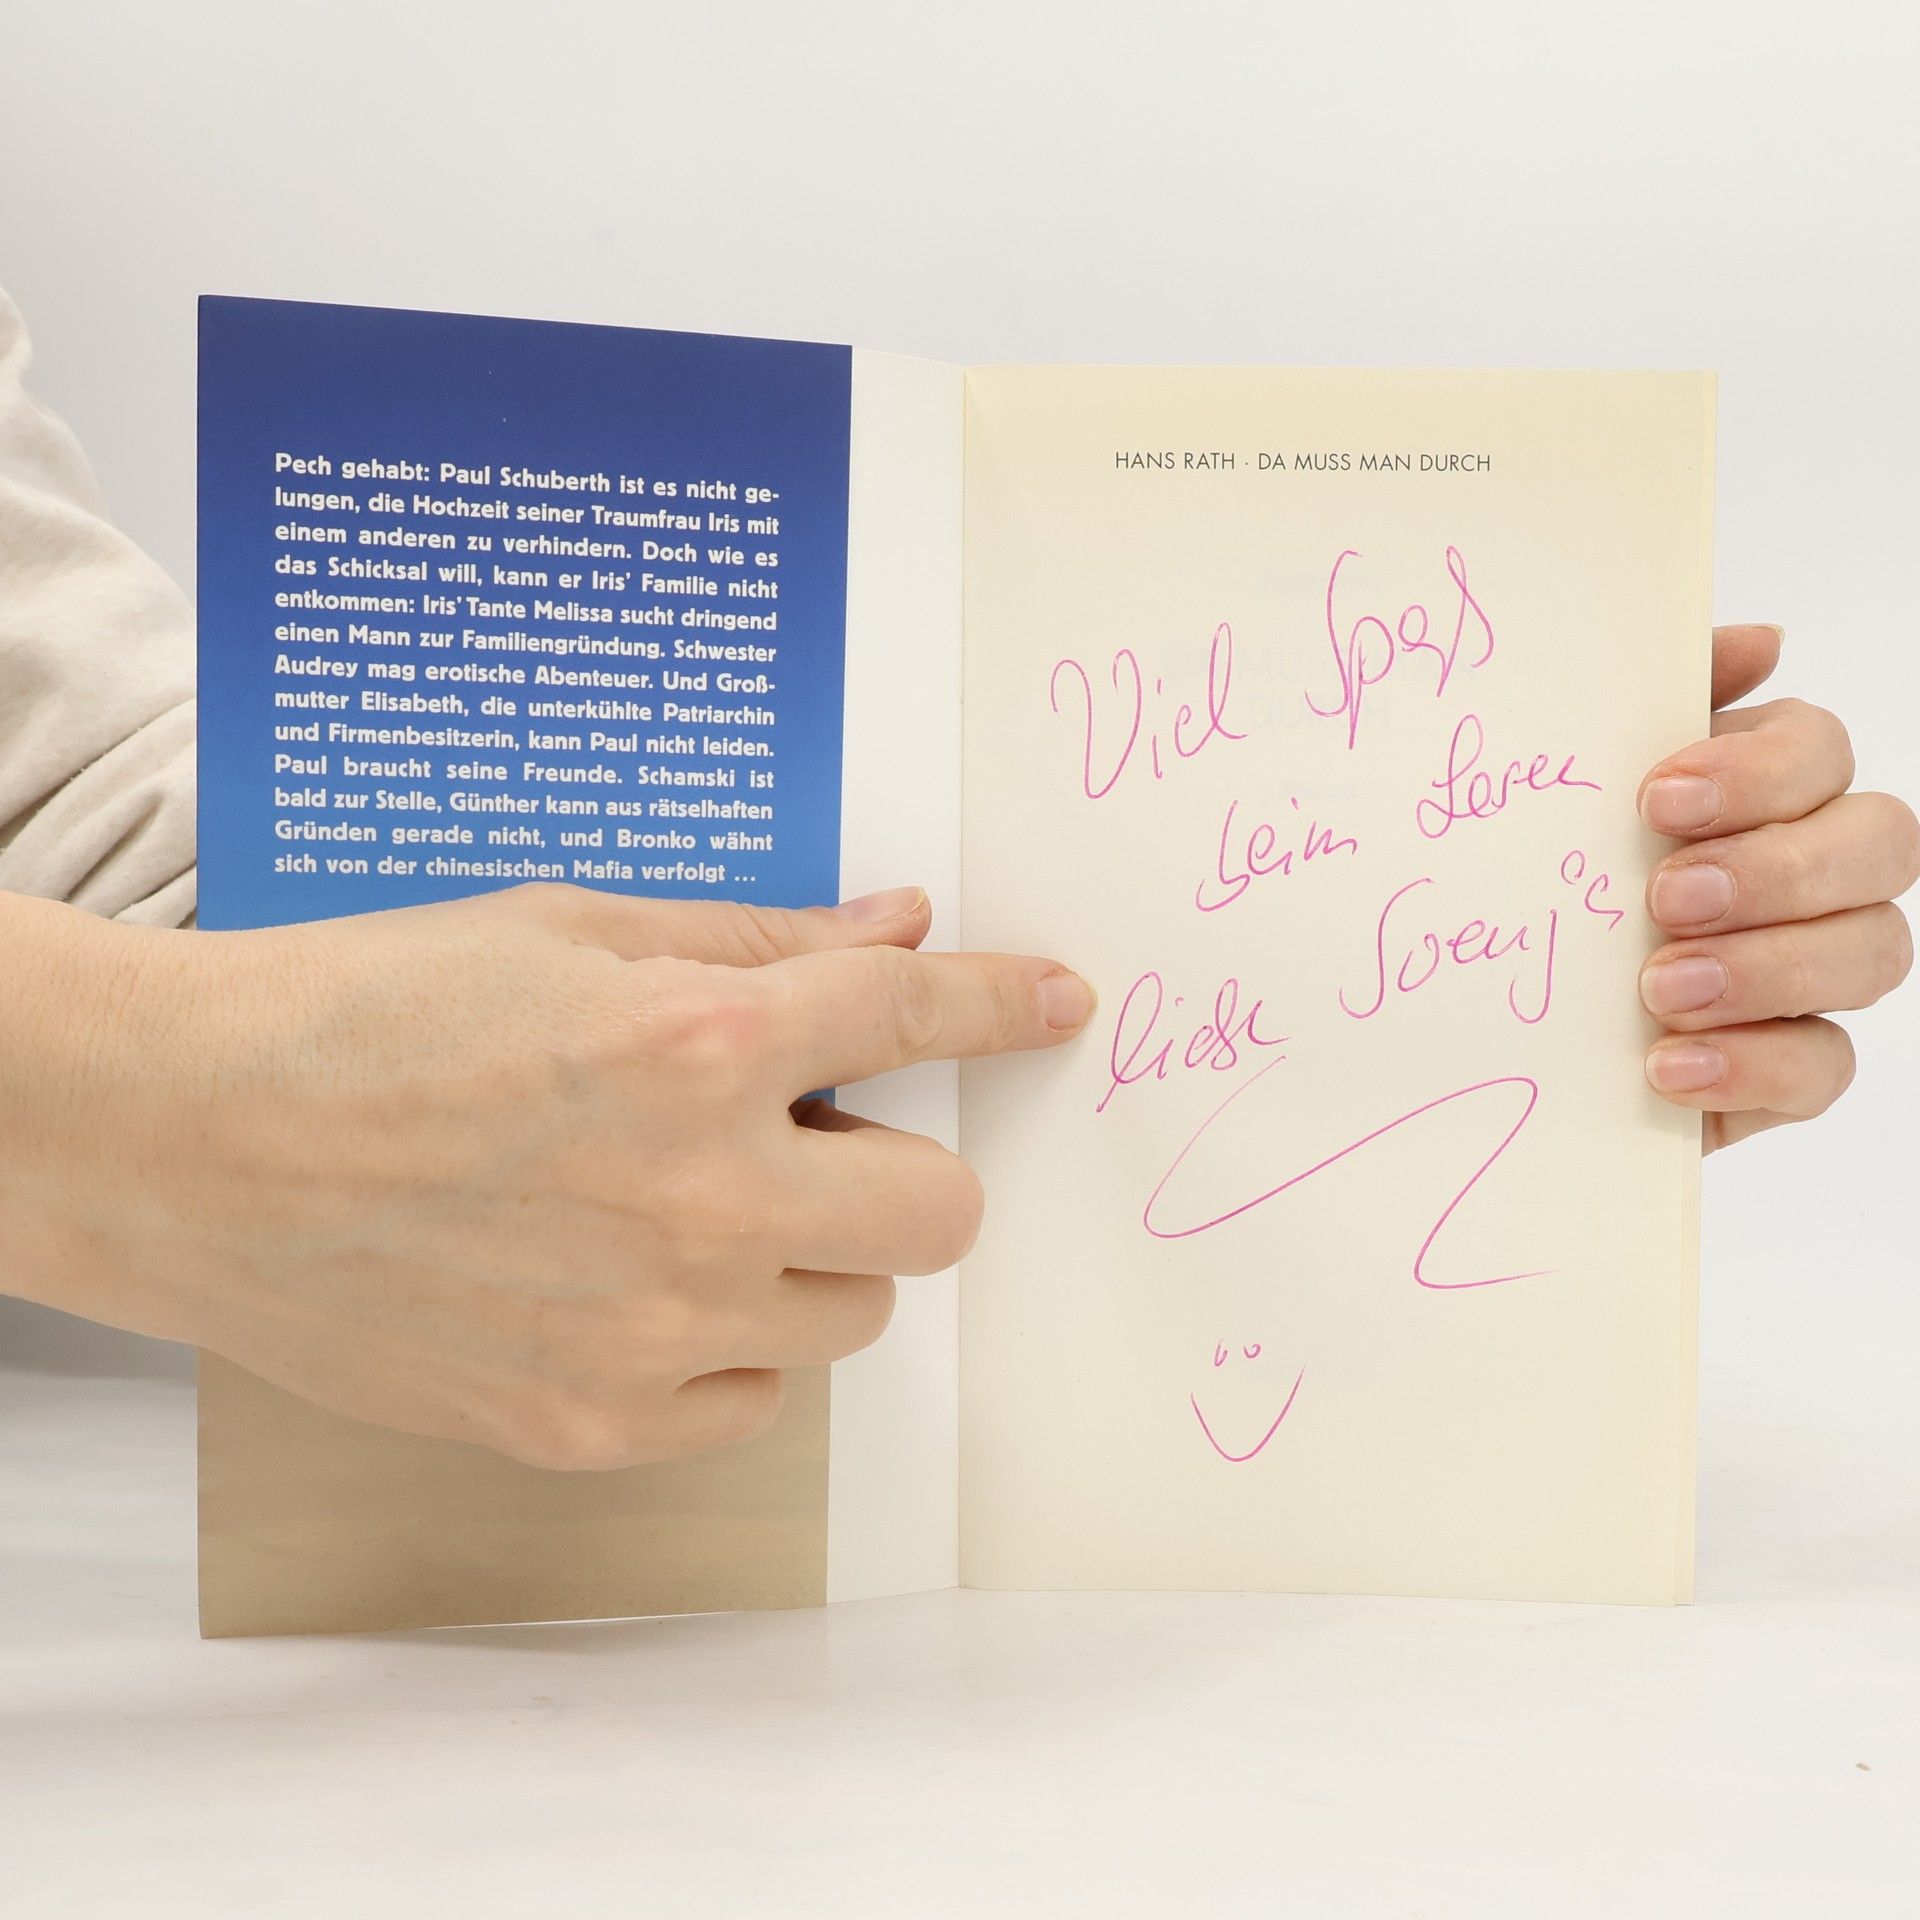 Pech gehabt: Paul Schuberth ist es nicht ge-
lungen, die Hochzeit seiner Traumfrau Iris mit
einem anderen zu verhindern. Doch wie es
das Schicksal will, kann er Iris’ Familie nicht
entkommen: Iris’ Tante Melissa sucht dringend
einen Mann zur Familiengründung. Schwester
Audrey mag erotische Abenteuer. Und Groß-
mutter Elisabeth, die unterkühlte Patriarchin
und Firmenbesitzerin, kann Paul nicht leiden.
Paul braucht seine Freunde. Schamski ist
bald zur Stelle, Günther kann aus rätselhaften
Gründen gerade nicht, und Bronko wähnt
sich von der chinesischen Mafia verfolgt ...
HANS RATH · DA MUSS MAN DURCH
Viel Spaß
beim Lesen
liebe